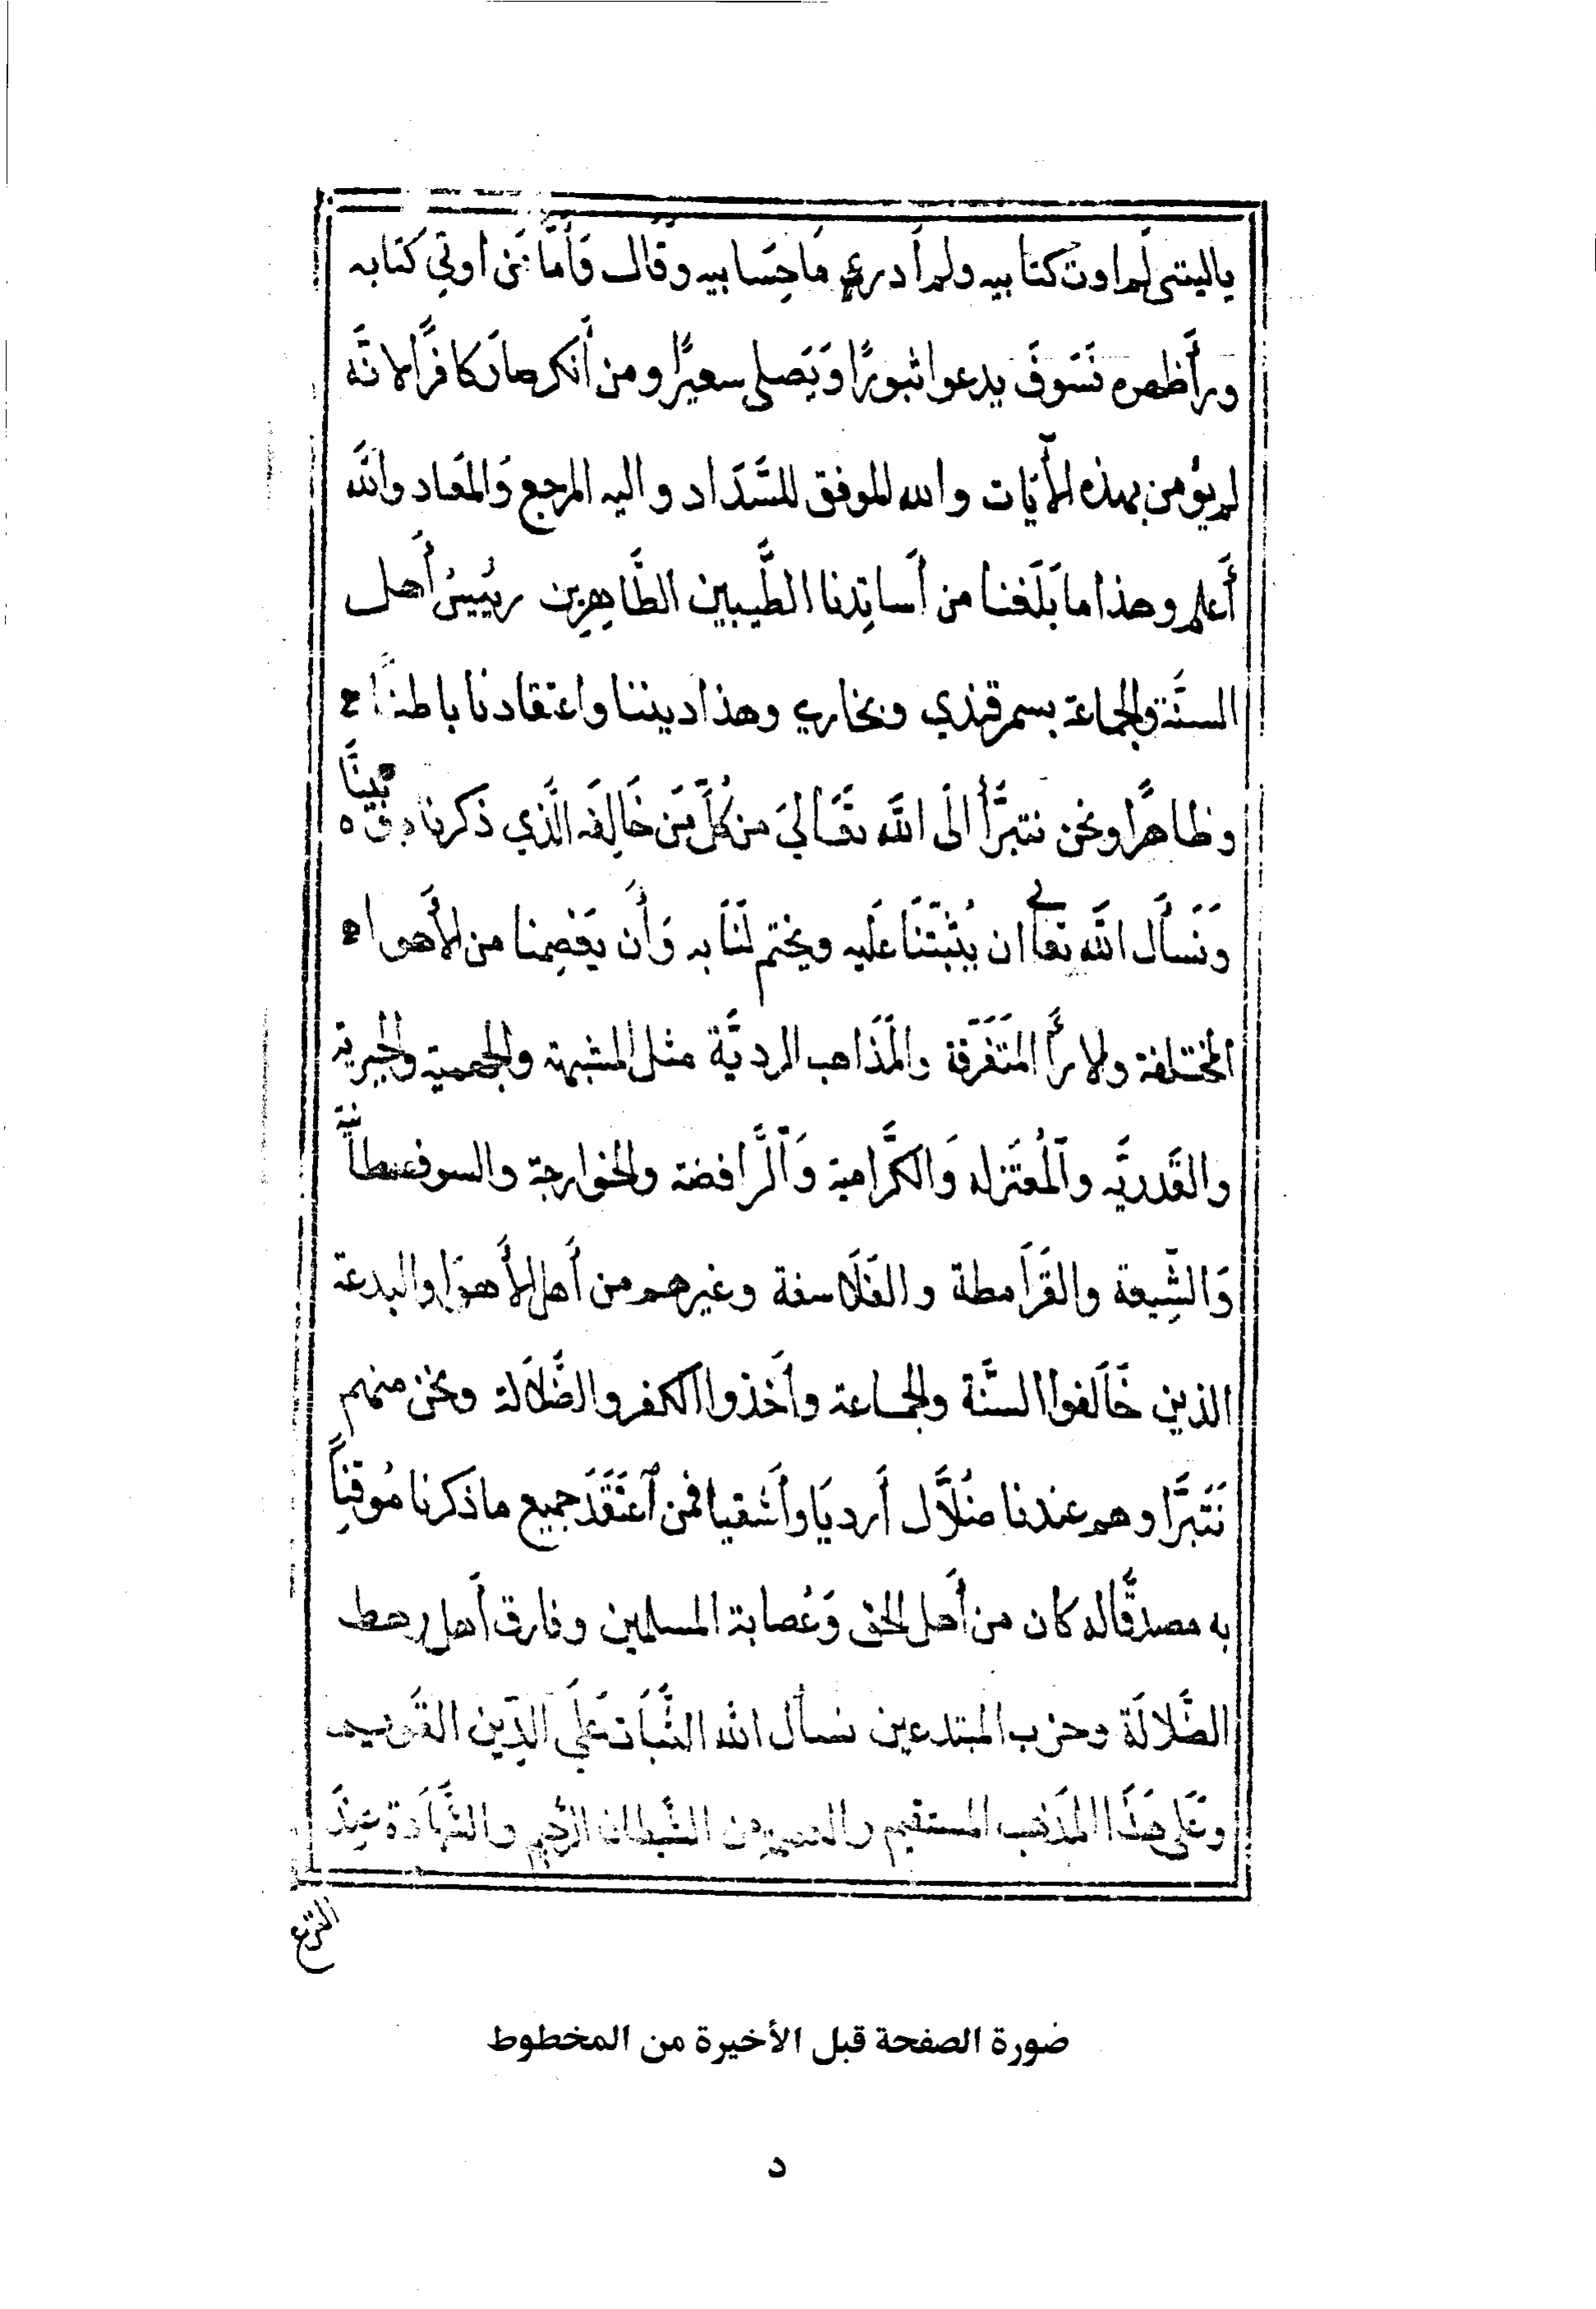 ياليتنى لم اوت كتابيه ولم أدري مَا حِسَابيه وقَال وَأَمَّا مَن اوتِي كَتابه
ورأ ظهره فَسَوفَ يدعوا ثبورًا وَيَصلى سعيرًا ومن أَنكر صار كافرًا لانَّه
لم يؤمن بهذه الأيَات والله الموفق للسَّدَاد واليه المرجع وَالمَعاد والله
أَعلم وهذا ما بَلَغنا من أَساتِدنا الطَّيبين الطَّاهِرِين رئيسُ أَهل
السنَّة والجماعة بسمرقندي وبخاري وهذا ديننا واعتقادنا باطنًا
وظاهرًا ونحن نتبرَّأ الَى اللَّه تَعَالَي من كُلِّ مَن خَالِفَه الَّذي ذكرناه وبينَّا
وَنَسأَل اللَّه تعالى ان يُثبّتَنَا عَلَيه ويختم لَنَا به وَأَن يَعْصِمنا من الأَهوا
المختلفة والارأَ المتَفَرّقة والمَذَاهب الرديَّة مثل المشبهة والجهمية والجبرية
والقَدريَّه وَالمُعتَزله وَالكرَّامية وَالرَّافضة والخوارجة والسوفسطأنية
وَالشِّيعة والقَرَامطة والفَلَاسفة وغيرهم من أَهل الأَهوَا والبدعة
الذين خَالَفوا السنَّة والجماعة وأَخذوا الكفر والضَّلَالة ونحن منهم
نَتَبرَّا وهم عندنا ضُلَّال أَرديَا وأَشقيا فمن اَعتَقَدَ جميع ما ذكرنا مُوقنِاً
به مصدقًا له كان من أَهل الحق وَعُصابة المسلمين وفارق أَهل رهط
الضَّلالَة وحزب المبتدعين نسأل الله الثَّبَات عَلَي الدِّين القَويم
وعَلَى هَذَا المَذهب المستقيم والعصمة من الشَّيطان الرَّجيم والشَّهَادة عِندَ
النزع
صورة الصفحة قبل الأخيرة من المخطوط
د